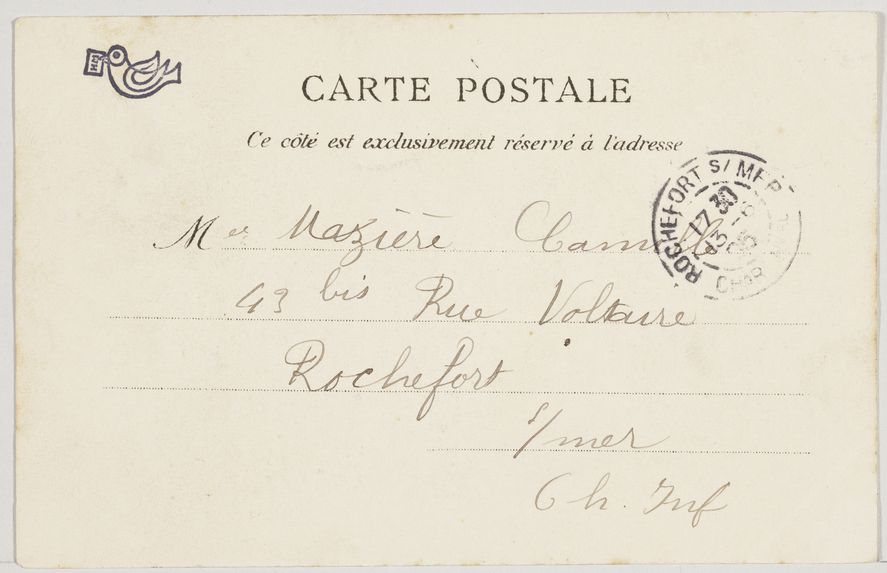 CARTE POSTALE
Ce côté est exclusivement réservé à l'adresse
ROCHEFORT S/ MER
17 30
13
05
CHAR INFRE
Mer Mazière Camille
43 bis Rue Voltaire
Rochefort
s/mer
Ch. Inf